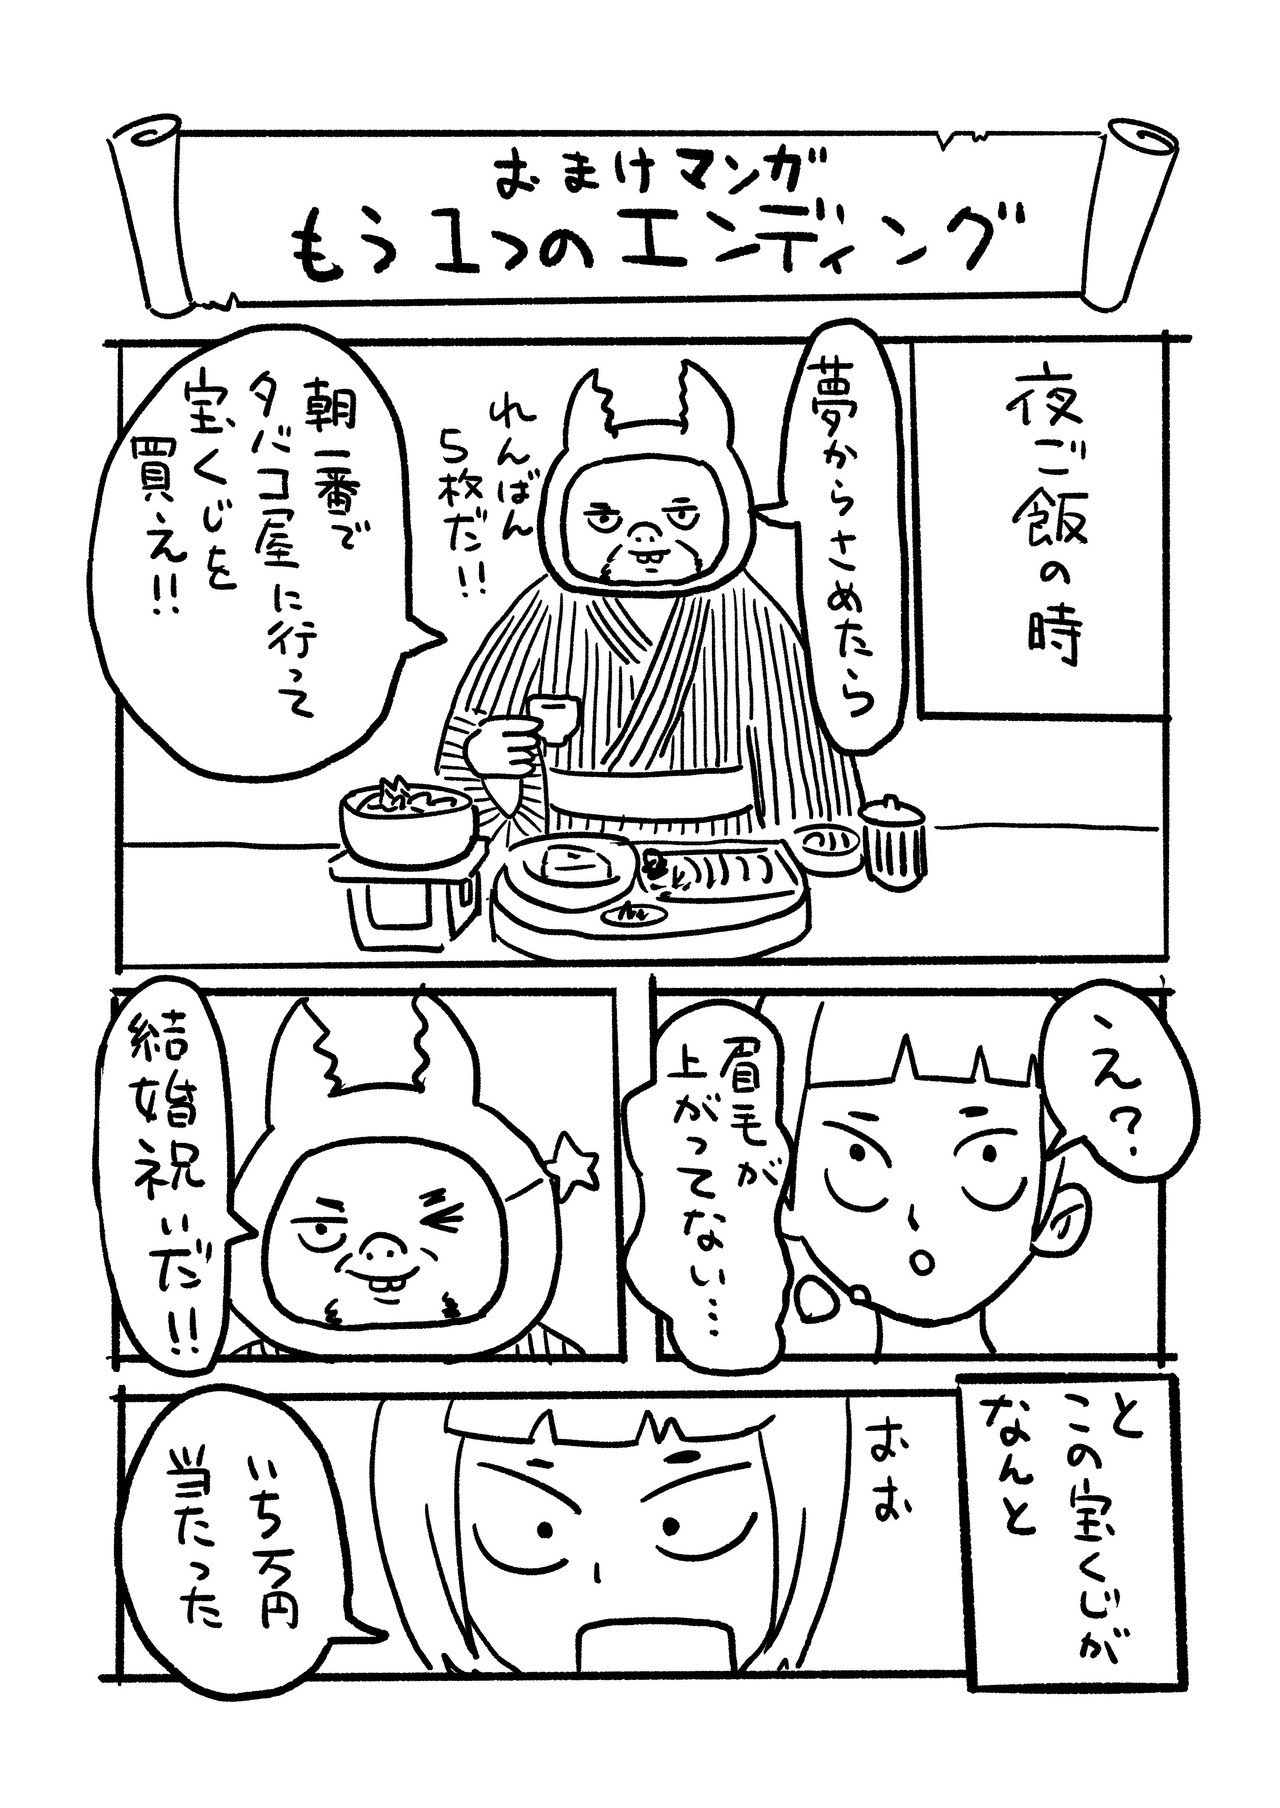 おまけマンガ
もう1つのエンディング
夜ご飯の時
夢からさめたら
れんばん
5枚だ!!
朝一番で
タバコ屋に行って
宝くじを
買え!!
え?
眉毛が
上がってない…
結婚祝いだ!!
と
この宝くじが
なんと
おお
いち万円
当たった